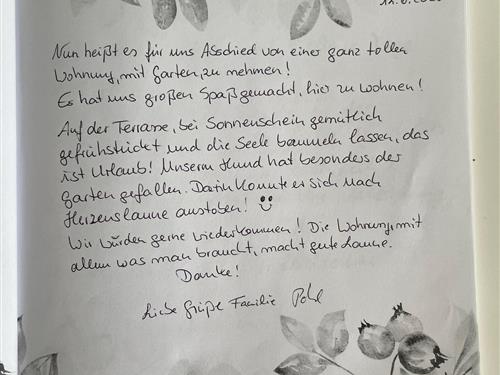 Nun heißt es für uns Abschied von einer ganz tollen
Wohnung, mit Garten, zu nehmen!
Es hat uns großen Spaß gemacht, hier zu wohnen!
Auf der Terrasse, bei Sonnenschein gemütlich
gefrühstückt und die Seele baumeln lassen, das
ist Urlaub! Unserm Hund hat besonders der
Garten gefallen. Darin konnte er sich nach
Herzenslaune austoben!
Wir würden gerne wiederkommen! Die Wohnung, mit
allem was man braucht, macht gute Laune.
Danke!
Liebe Grüße Familie